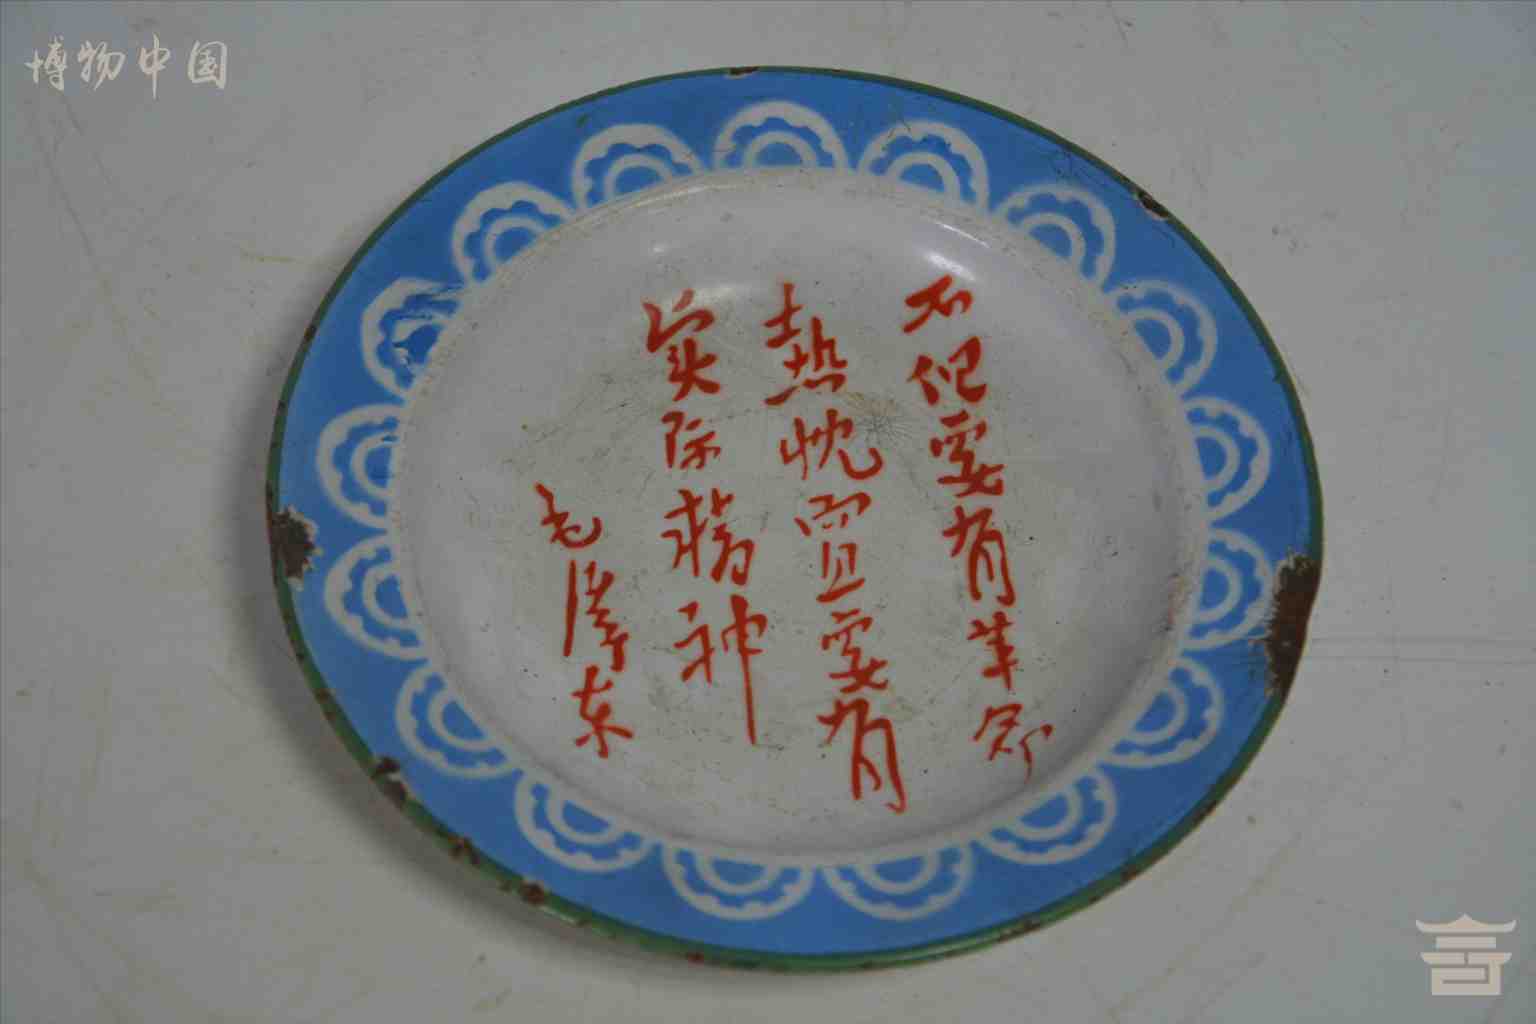 博物中国
不但要有革命
热忱而且要有
实际精神
毛泽东